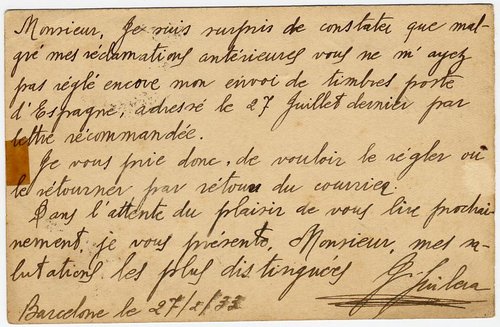 Monsieur, Je suis surpris de constater que mal-
gré mes réclamations antérieures vous ne m'ayez
pas réglé encore mon envoi de timbres poste
d'Espagne, adressé le 27 Juillet dernier par
lettre récommandée.
Je vous prie donc, de vouloir le régler ou
le rétourner par rétour du courrier.
Dans l'attente du plaisir de vous lire prochai-
nement, je vous présente, Monsieur, mes sa-
lutations les plus distinguées
Barcelone le 27/X/33